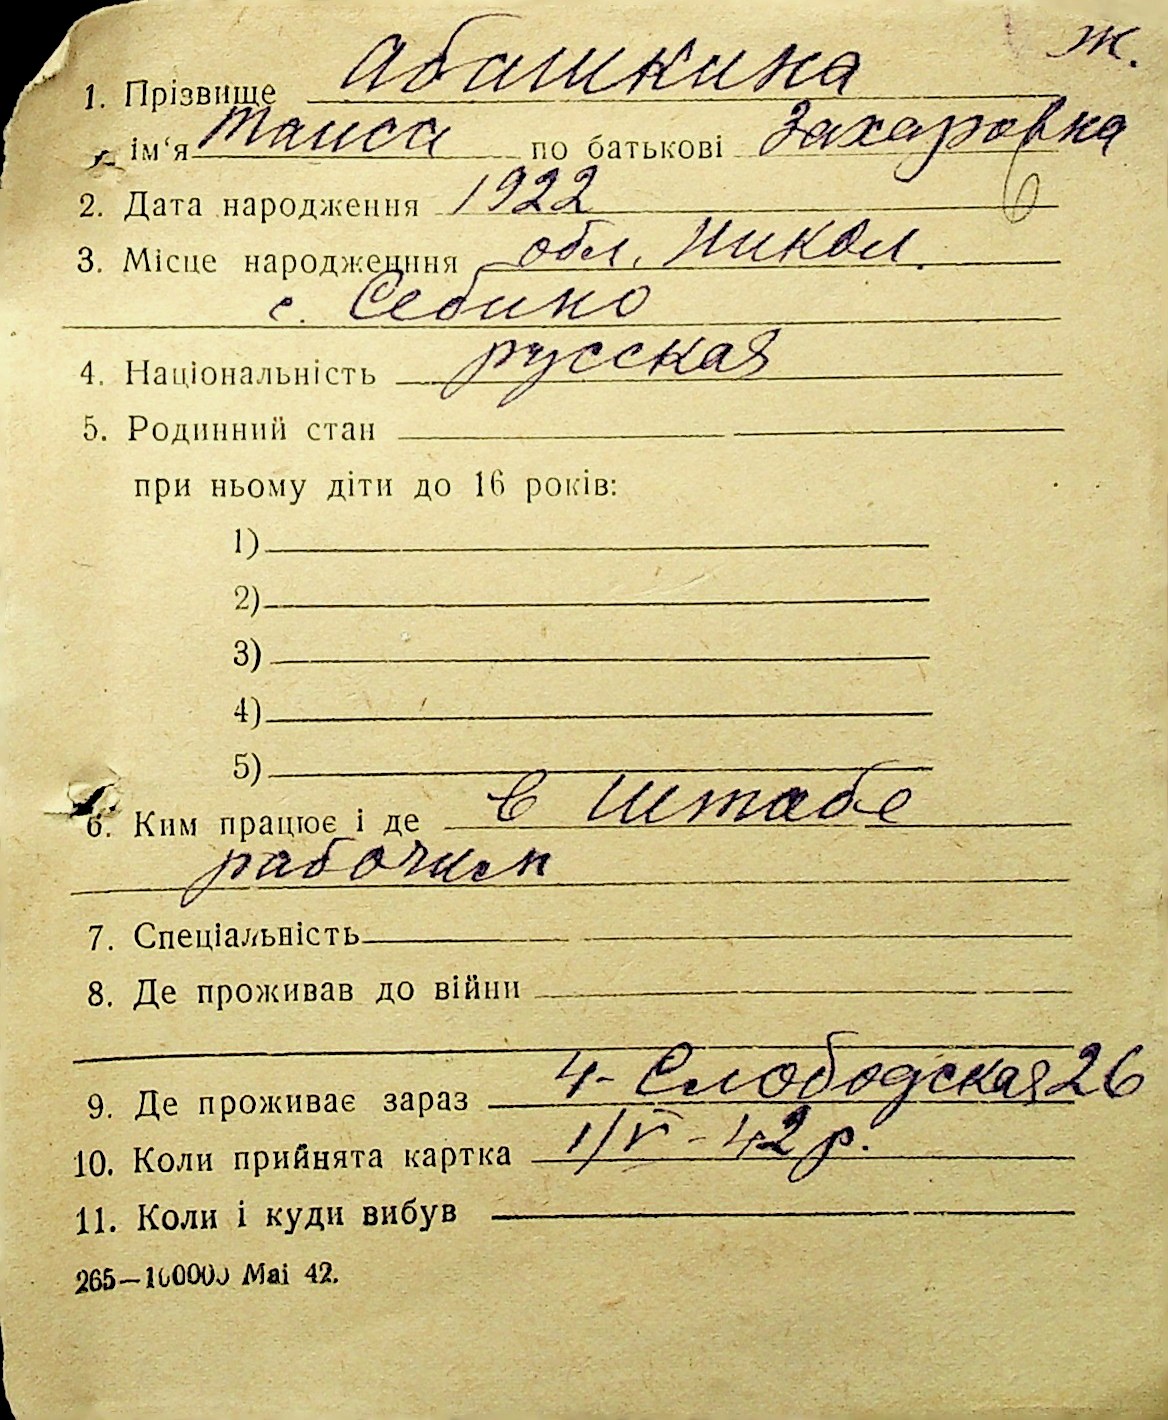 ж.
1. Прізвище Абашкина
ім‘я Таиса по батькові Захаровна
6
2. Дата народження 1922
3. Місце народженння обл. Никол.
с. Себино
4. Національність русская
5. Родинний стан
при ньому діти до 16 років:
1)
2)
3)
4)
5)
6. Ким працює і де в штабе
рабочим
7. Спеціальність
8. Де проживав до війни
9. Де проживає зараз 4-Слободская 26
10. Коли прийнята картка 1/V-42 р.
11. Коли і куди вибув
265—100000 Mai 42.